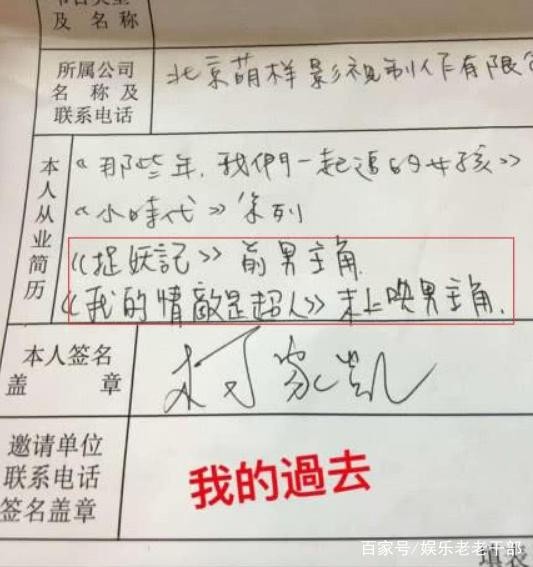 及 名 称
所属公司
名 称 及
联系电话
北京萌样影視制作有限
本人从业简历
《那些年,我們一起追的女孩》
《小時代》系列
《捉妖記》前男主角.
《我的情敵是超人》未上映男主角.
本人签名
盖 章
柯家凯
邀请单位
联系电话
签名盖章
我的過去
百家号/娱乐老老干部